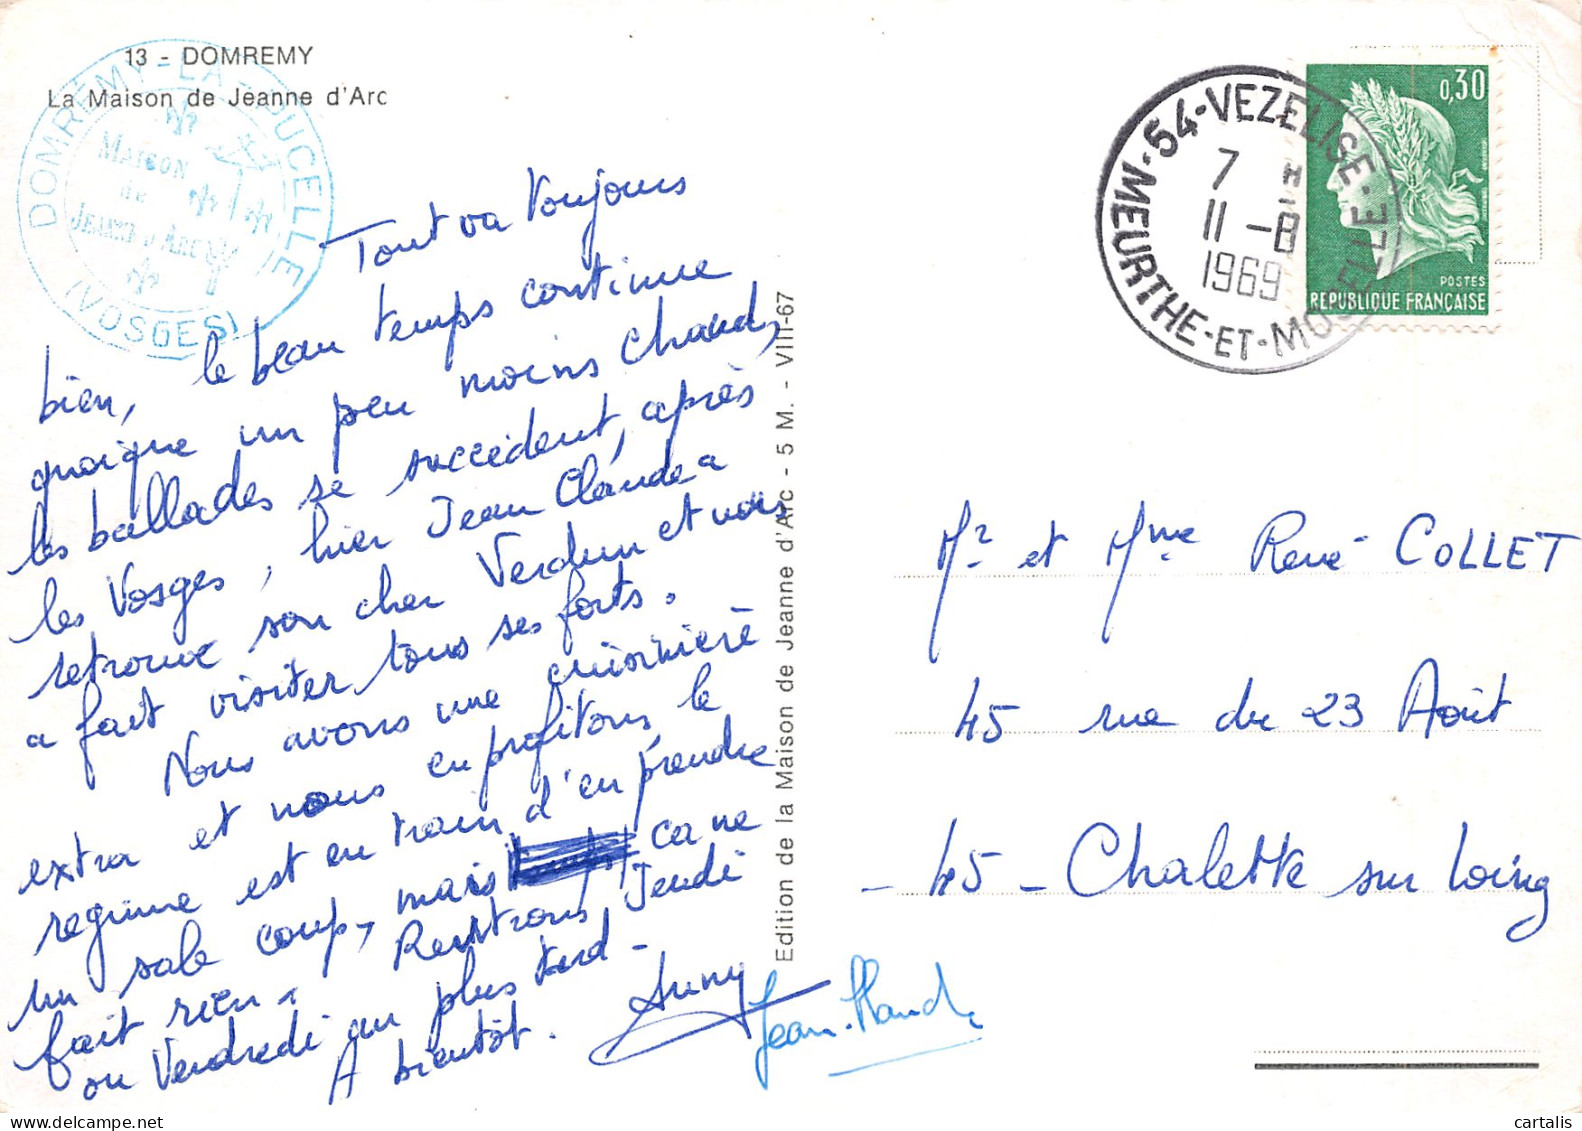 13 - DOMREMY
La Maison de Jeanne d'Arc
DOMREMY-LA-PUCELLE
(VOSGES)
MAISON
de
JEANNE D'ARC
Tout va toujours
bien, le beau temps continue
quoique un peu moins chaud,
les ballades se succèdent, après
les Vosges, hier Jean Claude a
retrouvé son cher Verdun et nous
a fait visiter tous ses forts.
Nous avons une cuisinière
extra et nous en profitons, le
régime est en train d'en prendre
un sale coup, mais ça ne
fait rien. Rentrons Jeudi
ou Vendredi au plus tard -
A bientôt.
Anny
Jean-Claude
Edition de la Maison de Jeanne d'Arc - 5 M. - VIII-67
54-VEZELISE
MEURTHE-ET-MOSELLE
7 H
11 -8
1969
0,30
POSTES
REPUBLIQUE FRANÇAISE
Mr et Mme René COLLET
45 rue du 23 Août
- 45 - Chalette sur Loing
cartalis